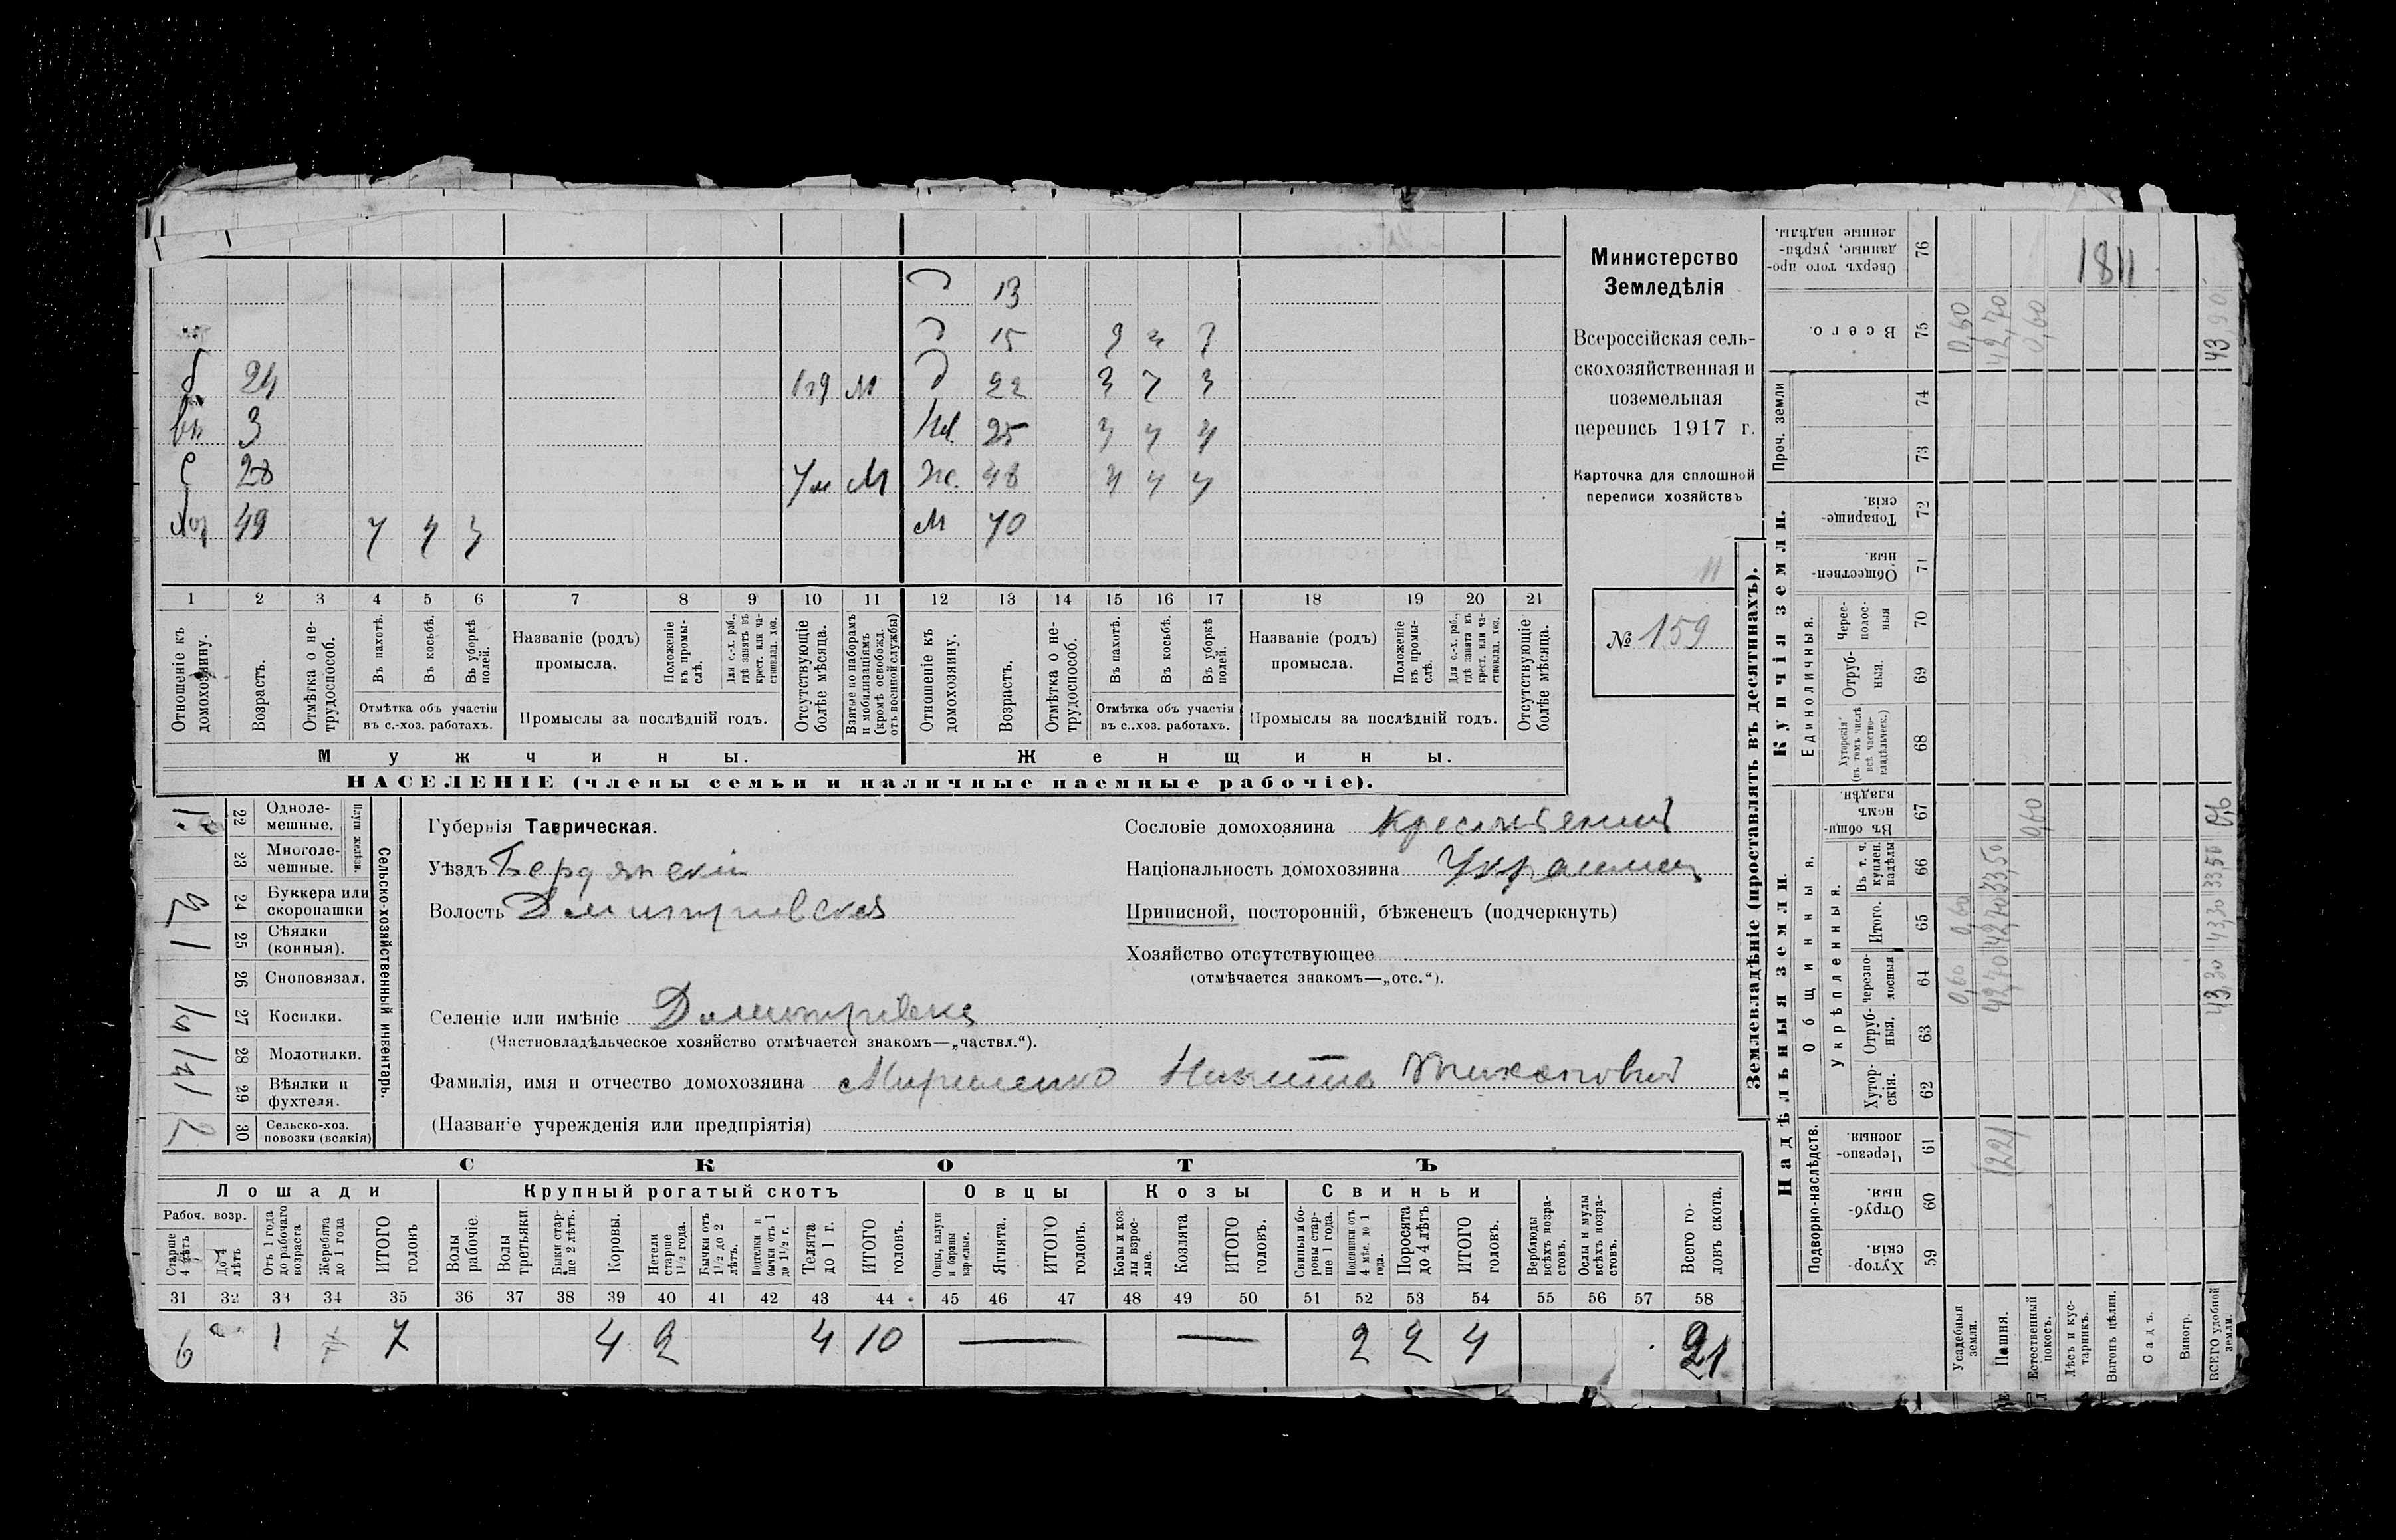 Министерство
Земледѣлія
Всероссійская сель-
скохозяйственная и
поземельная
перепись 1917 г.
Карточка для сплошной
переписи хозяйствъ
№ 159
д 13
д 15
24 м д 22
вн 3 25
С 28 М ж. 48
Хоз 49 М 70
1 2 3 4 5 6 7 8 9 10 11 12 13 14 15 16 17 18 19 20 21
Отношеніе къ домохозяину.
Возрастъ.
Отмѣтка о не-трудоспособ.
Въ пахотѣ.
Въ косьбѣ.
Въ уборкѣ полей.
Отмѣтка объ участіи
въ с.-хоз. работахъ.
Названіе (родъ)
промысла.
Положеніе въ промы-слѣ.
Для с.-х. раб., гдѣ занятъ въ крест. или ча-стновлад. хоз.
Промыслы за послѣдній годъ.
Отсутствующіе болѣе мѣсяца.
Взятые по наборамъ и мобилизаціямъ (кромѣ освобожд. отъ военной службы)
Отношеніе къ домохозяину.
Возрастъ.
Отмѣтка о не-трудоспособ.
Въ пахотѣ.
Въ косьбѣ.
Въ уборкѣ полей.
Отмѣтка объ участіи
въ с..хоз. работахъ.
Названіе (родъ)
промысла.
Положеніе въ промы-слѣ.
Для с.-х. раб., гдѣ занята въ крест. или ча-стновлад. хоз.
Промыслы за послѣдній годъ.
Отсутствующіе болѣе мѣсяца.
Мужчины.
Женщины.
НАСЕЛЕНІЕ (члены семьи и наличные наемные рабочіе).
Сельско-хозяйственный инвентарь.
Плуги желѣзн.
22 Одноле-мешные. 1
23 Многоле-мешные.
24 Буккера или скоропашки 2
25 Сѣялки (конныя). 1
26 Сноповязал.
27 Косилки.
28 Молотилки.
29 Вѣялки и фухтеля. 1
30 Сельско-хоз. повозки (всякія) 2
Губернія Таврическая.
Уѣздъ Бердянскій
Волость Дмитріевская
Сословіе домохозяина Крестьянинъ
Національность домохозяина Украинец
Приписной, посторонній, бѣженецъ (подчеркнуть)
Хозяйство отсутствующее
(отмѣчается знакомъ—„отс.“).
Селеніе или имѣніе Дмитріевка
(Частновладѣльческое хозяйство отмѣчается знакомъ—„частвл.“).
Фамилія, имя и отчество домохозяина Мириленко Никита Тихонович
(Названіе учрежденія или предпріятія)
СКОТЪ
Лошади
Крупный рогатый скотъ
Овцы
Козы
Свиньи
Рабоч. возр.
Старше 4 лѣтъ
До 4 лѣтъ
Отъ 1 года до рабочаго возраста
Жеребята до 1 года
ИТОГО головъ
Волы рабочіе.
Волы третьяки.
Быки стар-ше 2 лѣтъ.
Коровы.
Нетели старше 1½ года.
Бычки отъ 1½ до 2 лѣтъ.
Подтелки и бычки отъ 1 до 1½ г.
Телята до 1 г.
ИТОГО головъ.
Овцы, валухи и бараны взрослые.
Ягнята.
ИТОГО головъ.
Козы и коз-лы взрос-лые.
Козлята
ИТОГО головъ.
Свиньи и бо-ровы стар-ше 1 года.
Подсвинки отъ 4 мѣс. до 1 года.
Поросята до 4 лѣтъ
ИТОГО головъ.
Верблюды всѣхъ возра-стовъ.
Ослы и мулы всѣхъ возра-стовъ.
Всего го-ловъ скота.
31 32 33 34 35 36 37 38 39 40 41 42 43 44 45 46 47 48 49 50 51 52 53 54 55 56 57 58
6 1 7 4 2 4 10 — — 2 2 4 21
Землевладѣніе (проставлять въ десятинахъ).
Надѣльныя земли.
Купчія земли.
Проч. земли
Подворно-наслѣдств.
Общинныя.
Укрѣпленныя.
Единоличныя.
59 Хутор-скія.
60 Отруб-ныя.
61 Черезпо-лосныя.
62 Хутор-скія.
63 Отруб-ныя.
64 Черезпо-лосныя
65 Итого.
66 Въ т. ч. куплен. надѣлы
67 Въ общи-номъ владѣн.
68 Хуторскія (въ томъ числѣ всѣ частно-владѣльческ.)
69 Отруб-ныя.
70 Черес-полос-ныя
71 Обществен-ныя.
72 Товарище-скія.
73
74
75 Всего.
76 Сверхъ того про-данные, укрѣп-ленные надѣлы.
Усадебныя земли. 0,60 0,60 0,60
Пашня. 1221 42,70 42,70 33,50 42,70
Естественный покосъ. 0,60 0,60
Лѣсъ и кус-тарникъ.
Выгонъ цѣлин. 1811
Садъ.
Виногр.
ВСЕГО удобной земли. 43,30 43,30 33,50 0,6 43,90